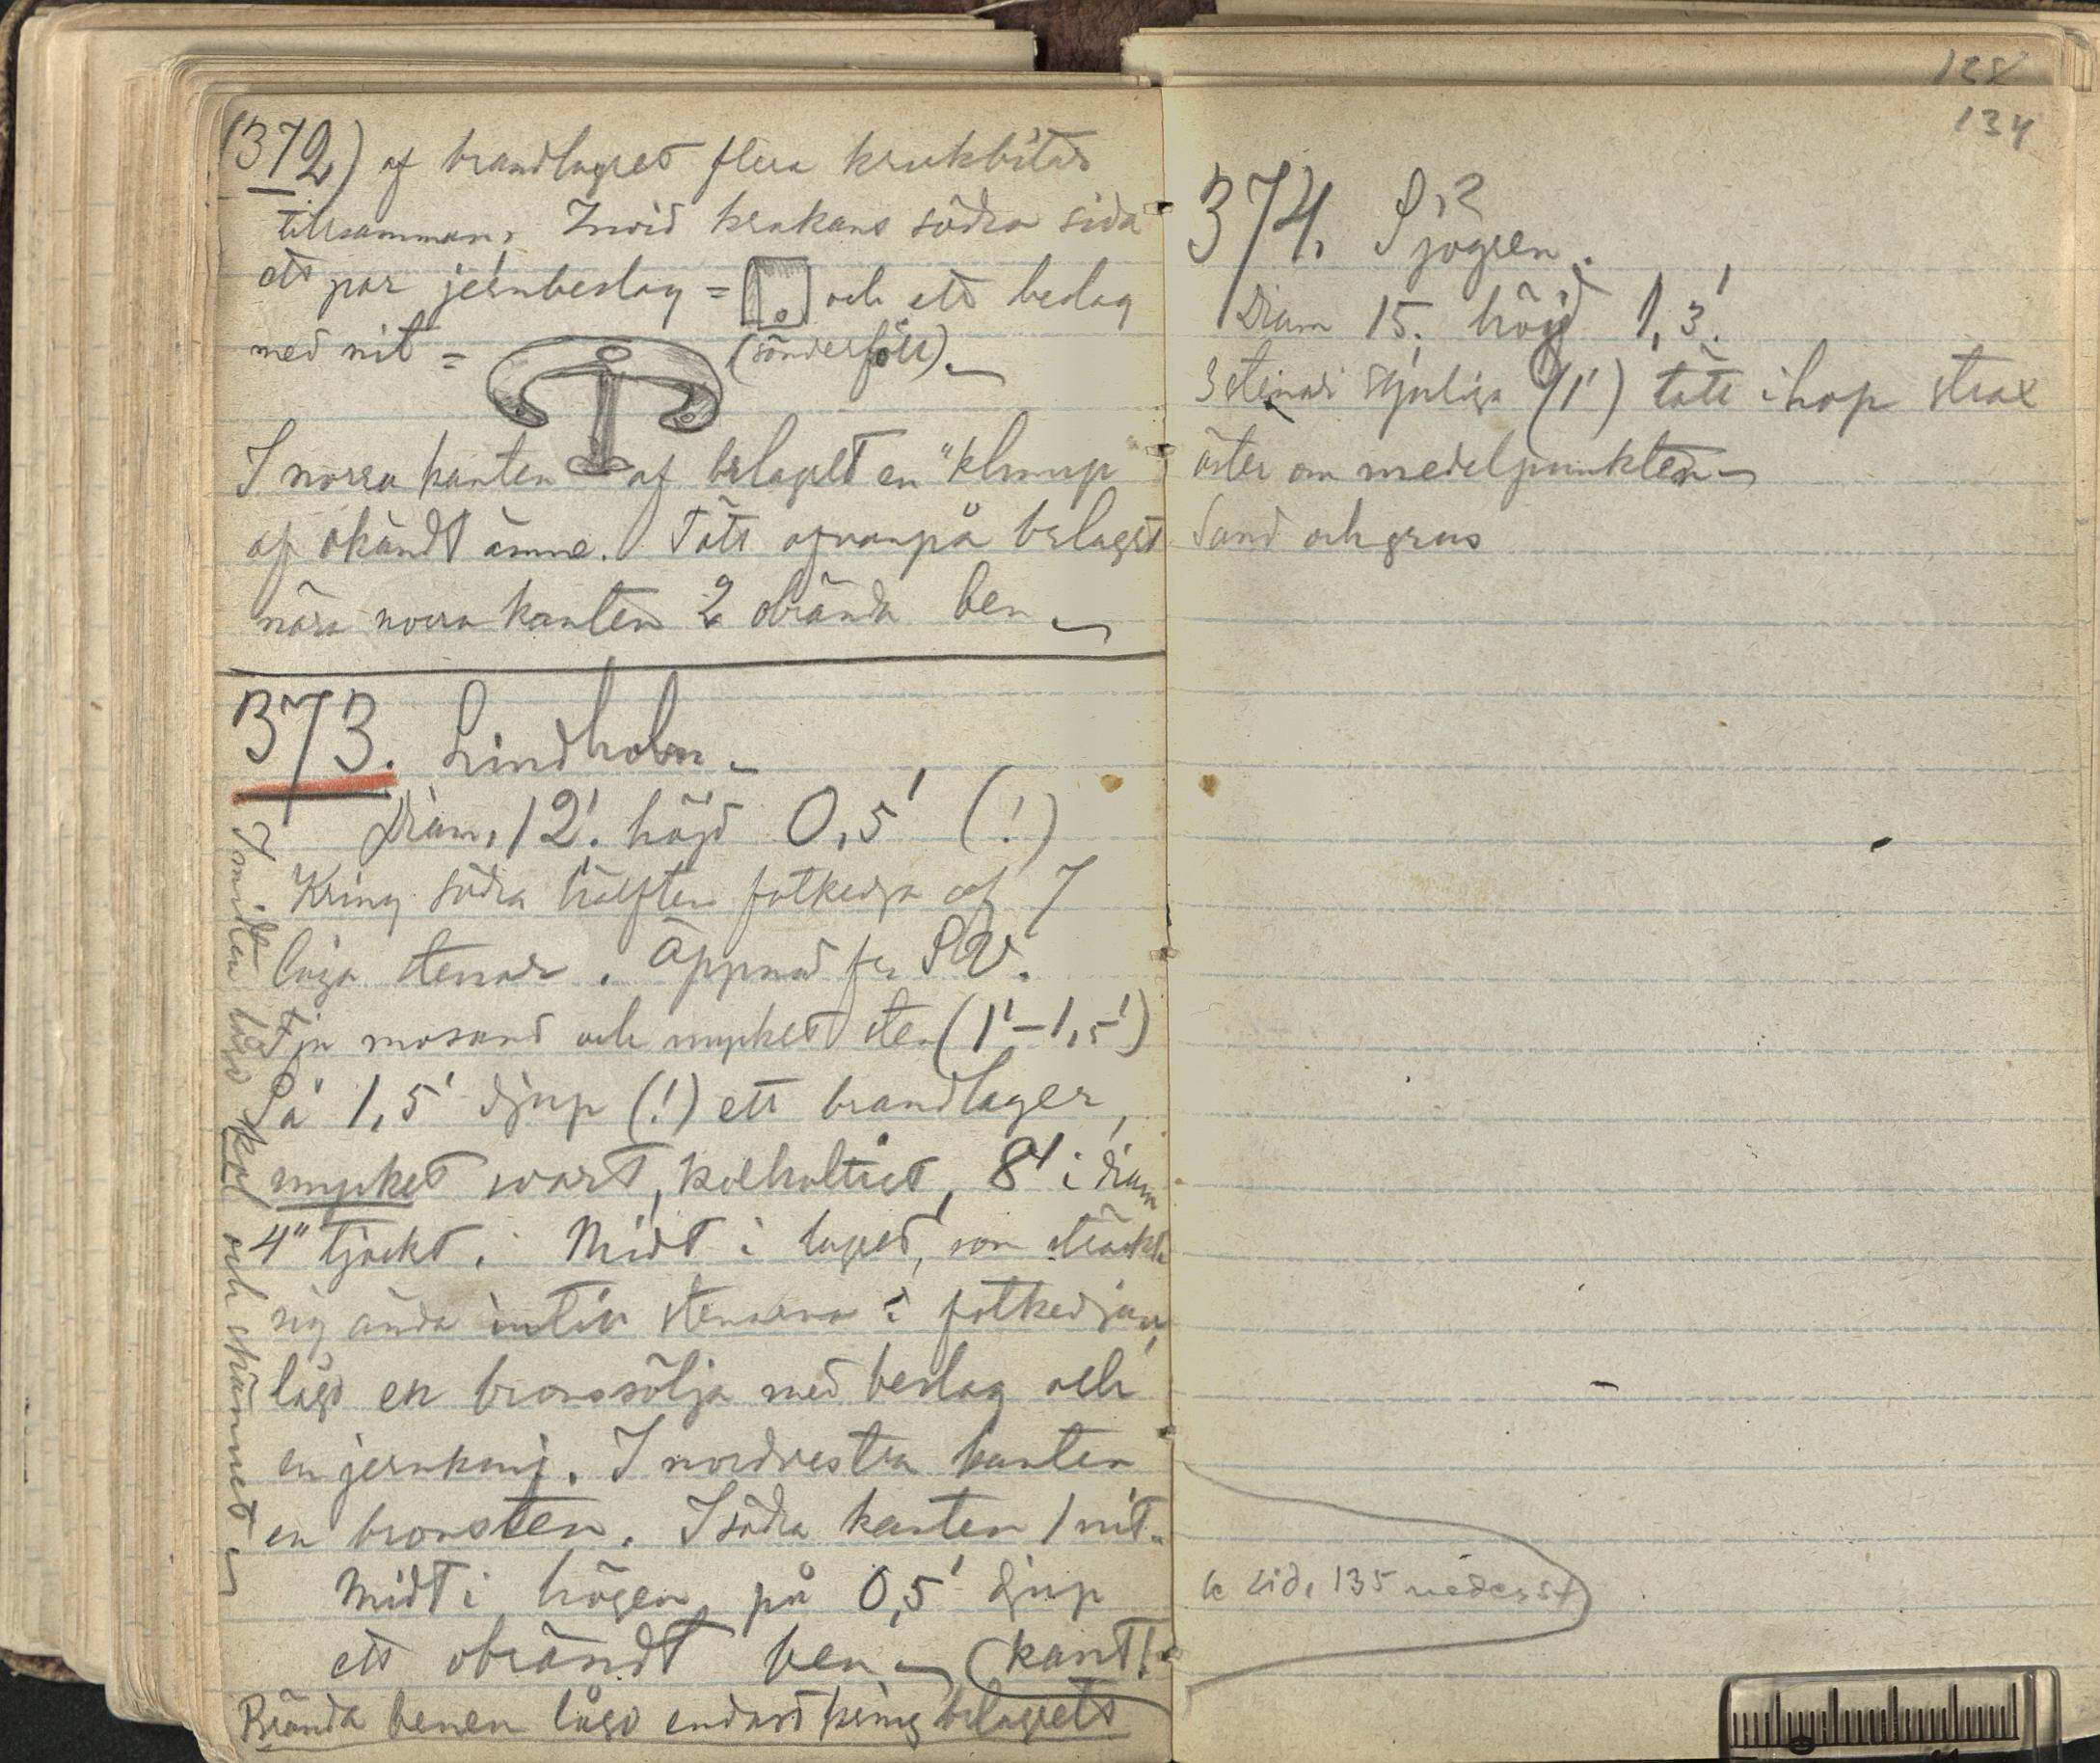 (372) af brandlagret flera krukbitar
tillsamman. Invid krukans södra sida
ett par jernbeslag = och ett beslag
med nit = (sönderföll).
I norra kanten af brlagret en "klump"
af okändt ämne. Tätt ofvanpå brlagret
nära norra kanten 2 obrända ben
373. Lindholm
Diam. 12'. höjd 0,5' (!)
Kring södra hälften fotkedja af 7
låga stenar. Öppnad fr SV.
Fin mosand och mycket sten (1'-1,5')
På 1,5' djup (!) ett brandlager,
mycket svart, kolhaltigt, 8' i diam
4" tjockt. Midt i lagret, som sträckte
sig ända intill stenarna i fotkedjan,
lågo en bronssölja med beslag och
en jernknif. I nordvestra kanten
en bronsten. I södra kanten 1 nit.
Midt i högen på 0,5' djup
ett obrändt ben
(kant!
Brända benen lågo endast kring brlagrets
I midten lågo kol och spännet
128
134
374. Sjögren.
Diam 15. höjd 1,3'.
3 stenar synliga (1') tätt ihop strax
öster om medelpunkten
Sand och grus
se sid. 135 nederst